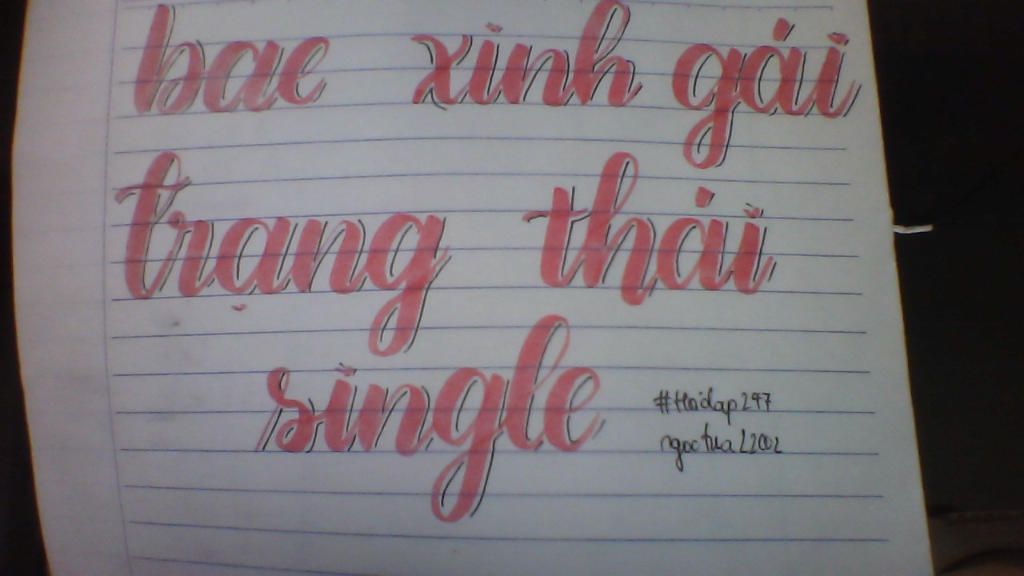 bae xinh gái
trạng thái
single
#Hoidap247